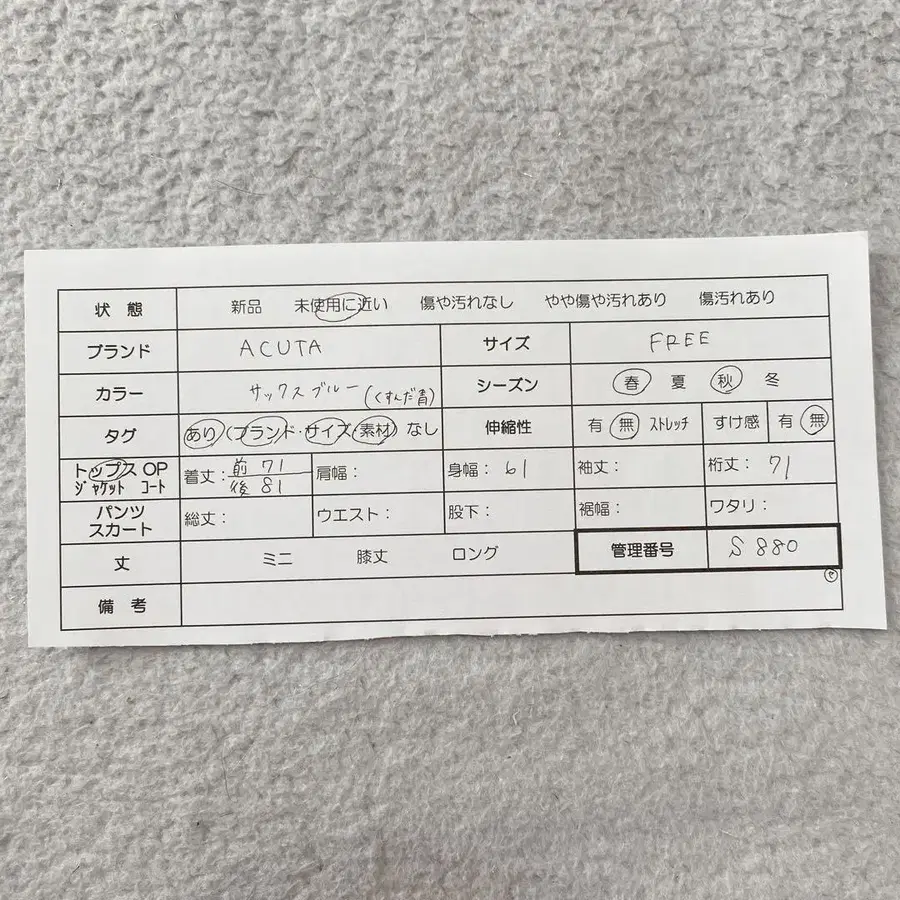 状 態 新品 未使用に近い 傷や汚れなし やや傷や汚れあり 傷汚れあり
ブランド ACUTA サイズ FREE
カラー サックスブルー (くすんだ青) シーズン 春 夏 秋 冬
タグ あり (ブランド・サイズ・素材) なし 伸縮性 有 無 ストレッチ すけ感 有 無
トップス OP ジャケット コート 着丈: 前 71 後 81 肩幅: 身幅: 61 袖丈: 裄丈: 71
パンツ スカート 総丈: ウエスト: 股下: 裾幅: ワタリ:
丈 ミニ 膝丈 ロング 管理番号 S 880
備 考